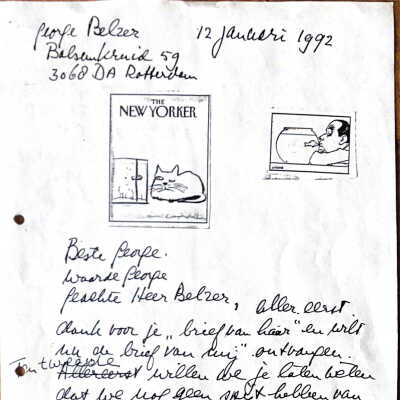 George Belzer 12 januari 1992
Balsemkruid 59
3068 DA Rotterdam
THE
NEW YORKER
Beste George.
Waarde George
Geachte Heer Belzer, aller eerst
dank voor je „brief van haar" en wilt
nu de brief van mij" ontvangen.
Ten tweede
Allereerst willen we je laten weten
dat we nog geen spijt hebben van